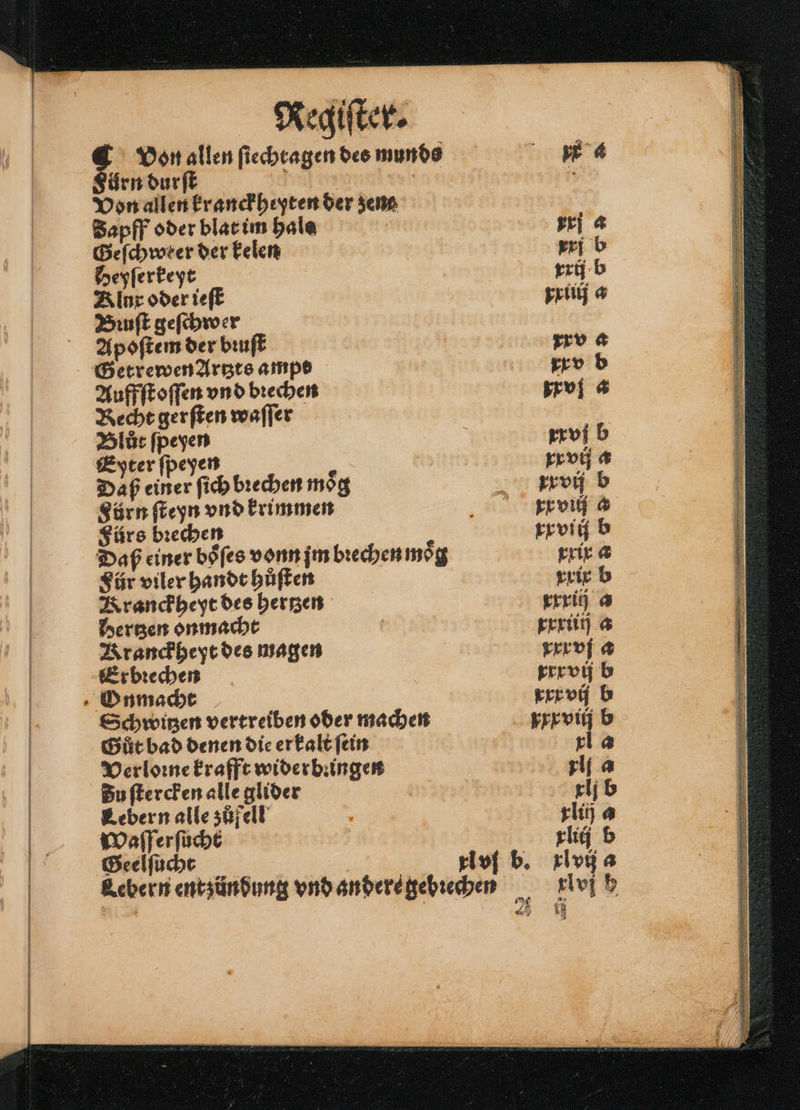 Regiſter.
¶ Von allen ſiechtagen des munds xx a
Fürn durſt
Von allen kranckheyten der zene
Zapff oder blat im hals xxj a
Geſchwer der kelen xxj b
Heyſerkeyt xxij b
Klux oder ieſt xxiiij a
Bꝛuſt geſchwer
Apoſtem der bꝛuſt xxv a
Getrewen Artzts ampt xxv b
Auffſtoſſen vnd bꝛechen xxvj a
Recht gerſten waſſer
Blůt ſpeyen xxvj b
Eyter ſpeyen xxvij a
Daß einer ſich bꝛechen moͤg xxvij b
Fürn ſteyn vnd krimmen xxviij a
Fürs bꝛechen xxviij b
Daß einer boͤſes vonn jm bꝛechen moͤg xxix a
Für viler handt hůſten xxix b
Kranckheyt des hertzen xxxiij a
Hertzen onmacht xxxiiij a
Kranckheyt des magen xxxvj a
Erbꝛechen xxxvij b
Onmacht xxxvij b
Schwitzen vertreiben oder machen xxxviij b
Gůt bad denen die erkalt ſein xl a
Verloꝛne krafft widerbꝛingen xlj a
Zu ſtercken alle glider xlj b
Lebern alle zůfell xliij a
Waſſerſucht xliij b
Geelſucht xlvj b. xlvij a
Lebern entzündung vnd andere gebꝛechen xlvj b
A ij